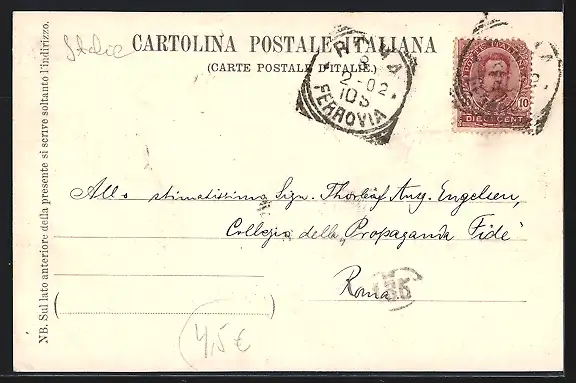 Italie
CARTOLINA POSTALE ITALIANA
(CARTE POSTALE D'ITALIE.)
ROMA
8
2-02
10S
FERROVIA
POSTE ITALIANE
10
DIECI CENT
NB. Sul lato anteriore della presente si scrive soltanto l'indirizzo.
Allo stimatissimo Sign. Thorläf Aug. Engelsen,
Collegio della „Propaganda Fide"
Roma
4,5 €